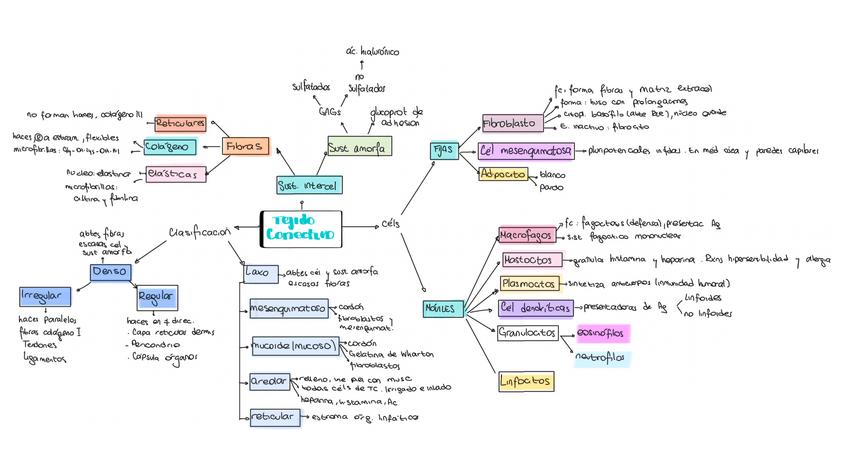 Tejido
Conectivo
Sust. intercel
Fibras
Reticulares
no forman haces, colágeno III
Colágeno
flexibles
Elásticas
núcleo: elastina
microfibrillas:
y fibrilina
Sust amorfa
GAGs
sulfatados
no
sulfatados
ác. hialurónico
glucoprot de
adhesion
Clasificación
Denso
abtes fibras
escasas cel y
sust amorfa
Irregular
haces paralelos
fibras colágeno I
Tendones
Ligamentos
Regular
haces en ≠ direc.
. Capa reticular dermis
- Pericondrio
. Cápsula órganos
Laxo
abtes cél y sust amorfa
escasas fibras
mesenquimatoso
cordón
fibroblastos y
mesenquimat.
mucoide (mucoso)
cordón
Gelatina de Wharton
fibroblastos
areolar
relleno, une piel con musc
todas céls de TC. Irrigado e
heparina, histamina, Ac
reticular
estroma órg. linfáticos
céls
Fijas
Fibroblasto
fc: forma fibras y matriz extracel
forma: huso con prolongaciones
citop. basófilo (abte RER), núcleo grande
E. inactivo: fibrocito
Cel mesenquimatosa
pluripotenciales indif. En méd ósea y paredes capilares
Adipocito
blanco
pardo
Móviles
Macrofagos
fc: fagocitosis (defensa), presentac Ag
sist fagocítico mononuclear
Mastocitos
granula histamina y heparina. Rxns hipersensibilidad y alergia
Plasmocitos
sintetiza anticuerpos (inmunidad humoral)
Cel dendríticas
presentadoras de Ag
linfoides
no linfoides
Granulocitos
eosinófilos
neutrofilos
Linfocitos